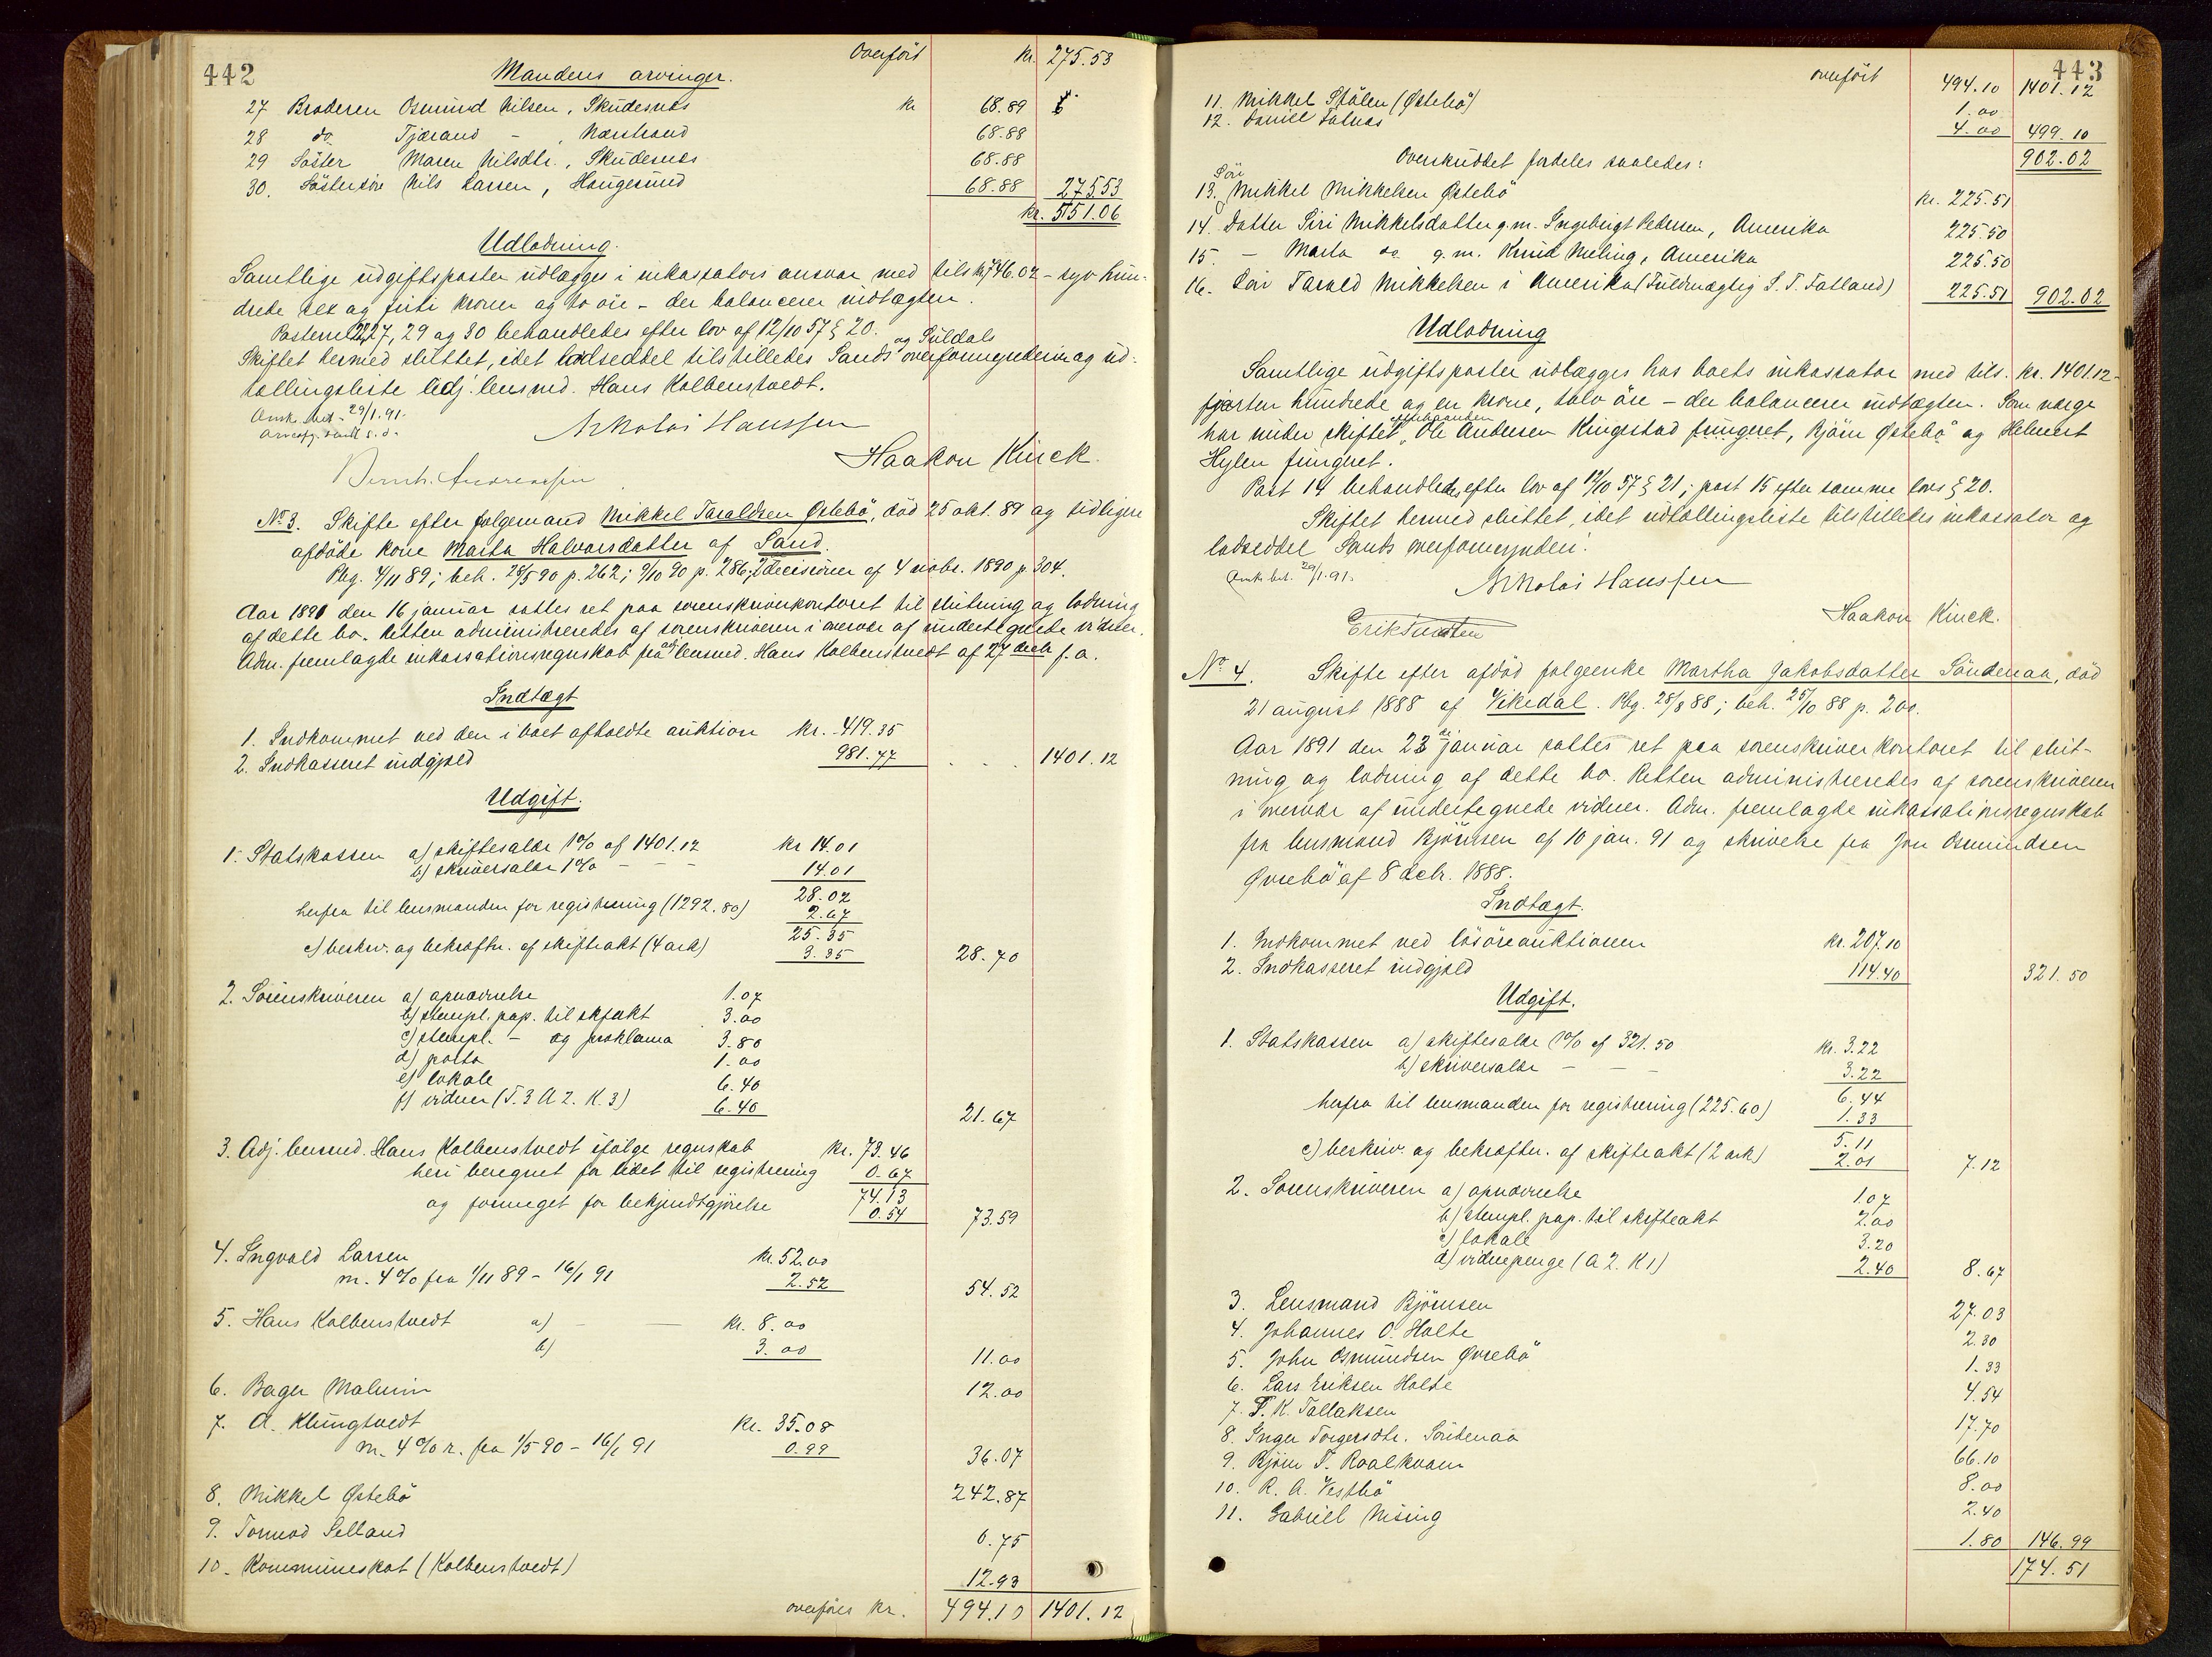 442
Overført kr. 275.53
Mandens arvinger.
27 Broderen Osmund Nilsen, Skudesnes kr 68.89
28 do. Tjærand - , Nærstrand 68.88
29 Søster Maren Nilsdtr., Skudesnes 68.88
30. Søstersøn Nils Larsen, Haugesund 68.88 275.53
kr. 551.06
Udlodning.
Samtlige udgiftsposter udlægges i inkassators ansvar med tils. kr. 746.02 - syv hun-
drede sex og firti kroner og to øre - der balancerer indtægten.
Posterne 27, 29 og 30 behandledes efter lov af 12/10 57 § 20.
Skiftet hermed sluttet, idet lodseddel tilstilledes Sands og Suldals overformynderier og ud-
tællingsliste adj. lensmd. Hans Kolbenstvedt.
Anm. bet. 29/1.91.
Nikolai Hanssen
Haakon Kinck.
Bernh. Andreassen
No 3. Skifte efter følgemand Mikkel Taraldsen Østebø, død 25 okt. 89 og tidligere
afdøde kone Marta Halvorsdatter af Sand.
Pbg. 4/11 89; beh. 28/5 90 p. 262; 9/10 90 p. 286; 2 decisioner af 4 novbr. 1890 p. 304.
Aar 1891 den 16 januar sattes ret paa sorenskriverkontoret til slutning og lodning
af dette bo. Retten administreredes af sorenskriveren i overvær af undertegnede vidner.
Adm. fremlagde inkassationsregnskab fra adj. lensmd. Hans Kolbenstvedt af 27 decbr f. a.
Indtægt
1. Indkommet ved den i boet afholdte auktion kr. 419.35
2. Indkasseret indgjæld 981.77 . . . 1401.12
Udgift.
1. Statskassen a) skiftesalær 1% af 1401.12 kr 14.01
b) skriversalær 1% - - - 14.01
28.02
herfra til lensmanden for registrering (1292.80) 2.67
25.35
c) beskriv. og bekræftn. af skifteakt (4 ark) 3.35 28.70
2. Sorenskriveren a) opnævnelse 1.07
b) stempl. pap. til skfakt 3.00
c) stempl. - og proklama 3.80
d) porto 1.00
e) lokale 6.40
f) vidner (T. 3 A 2. K. 3) 6.40 21.67
3. Adj. lensmd. Hans Kolbenstvedt ifølge regnskab kr. 73.46
heri beregnet for lidet til registrering 0.67
74.13
og formeget for bekjendtgjørelse 0.54 73.59
4. Ingvald Larsen kr. 52.00
m. 4% fra 1/11 89 - 16/1 91 2.52 54.52
5. Hans Kolbenstvedt a) - — kr. 8.00
b) 3.00 11.00
6. Bager Malmin 12.00
7. A. Klungtvedt kr. 35.08
m. 4% r. fra 1/5 90 - 16/1 91 0.99 36.07
8. Mikkel Østebø 242.87
9. Tormod Selland 0.75
10. Kommuneskat (Kolbenstvedt) 12.93
overføres kr. 494.10 1401.12
443
overført 494.10 1401.12
11. Mikkel Stålen (Østebø) 1.00
12. Daniel Fatnæs 4.00 499.10
902.02
Overskuddet fordeles saaledes:
13. Søn Mikkel Mikkelsen Østebø kr. 225.51
14. Datter Siri Mikkelsdatter g. m. Ingebrigt Pedersen, Amerika 225.50
15. - Marta do. g. m. Knud Meling, Amerika 225.50
16. Søn Tarald Mikkelsen i Amerika (Fuldmægtig S. T. Fatland) 225.51 902.02
Udlodning
Samtlige udgiftsposter udlægges hos boets inkassator med tils. kr. 1401.12 -
fjorten hundrede og en krone, tolv øre - der balancerer indtægten. Som værge
har under skiftet efterhaanden Ole Andersen Ringstad fungeret, Bjørn Østebø og Helmert
Hylen fungeret.
Post 14 behandledes efter lov af 12/10 57 § 21; post 15 efter samme lovs § 20.
Skiftet hermed sluttet, idet udtællingsliste tilstilledes inkassator og
lodseddel Sands overformynderi.
Anm. bet. 29/1.91.
Nikolai Hanssen
Haakon Kinck.
Erik
No 4. Skifte efter afdød følgeenke Martha Jakobsdatter Søndenaa, død
21 august 1888 af Vikedal. Pbg. 28/8 88; beh. 25/10 88 p. 200.
Aar 1891 den 23 januar sattes ret paa sorenskriverkontoret til slut-
ning og lodning af dette bo. Retten administreredes af sorenskriveren
i overvær af undertegnede vidner. Adm. fremlagde inkassationsregnskab
fra lensmand Bjørnsen af 10 jan. 91 og skrivelse fra Jon Osmundsen
Øvrebø af 8 decbr. 1888.
Indtægt.
1. Indkommet ved løsøreauktionen kr. 207.10
2. Indkasseret indgjæld 114.40 321.50
Udgift.
1. Statskassen a) skiftesalær 1% af 321.50 kr. 3.22
b) skriversalær - - - 3.22
6.44
herfra til lensmanden for registrering (225.60) 1.33
5.11
c) beskriv. og bekræftn. af skifteakt (2 ark) 2.01 7.12
2. Sorenskriveren a) opnævnelse 1.07
b) stempl. pap. til skifteakt 2.00
c) lokale 3.20
d) vidnepenge (A 2. K 1) 2.40 8.67
3. Lensmand Bjørnsen 27.03
4. Johannes O. Holte 2.30
5. John Osmundsen Øvrebø 1.33
6. Lars Eriksen Holte 4.54
7. T. K. Tallaksen 17.70
8. Inger Torgersdtr. Søndenaa 66.10
9. Bjørn T. Raalkvam 8.00
10. R. A. Vestbø 2.40
11. Gabriel Nising 1.80 146.99
174.51